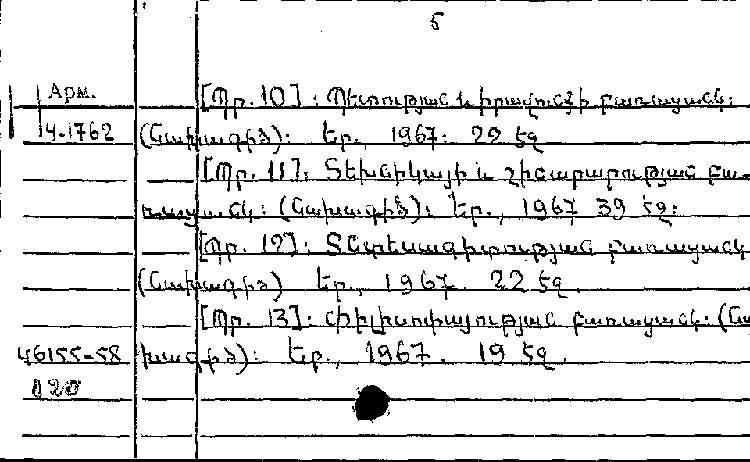 5
Арм.
[Պր. 10]: Պետության և իրավունքի բառացանկ:
Կ-1762 (Նախագիծ): Եր., 1967: 22 էջ
[Պր. 11]: Տեխնիկայի և շինարարության բա-
ռացանկ: (Նախագիծ): Եր., 1967 39 էջ:
[Պր. 12]: Տնտեսագիտության բառացանկ
(Նախագիծ) Եր., 1967. 22 էջ.
[Պր. 13]: Փիլիսոփայության բառացանկ: (Նա
46155-58 խագիծ): Եր., 1967. 19 էջ.